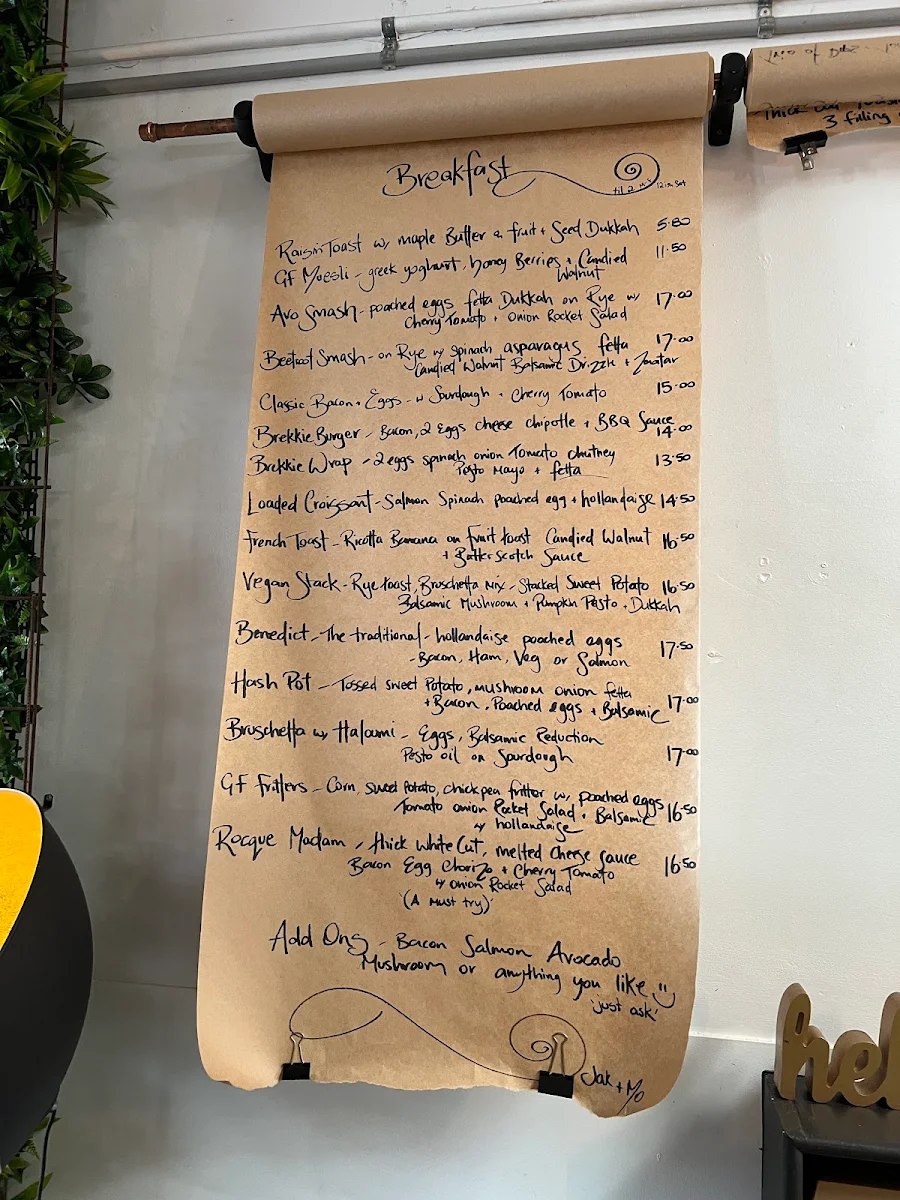 Breakfast
til 2 M-S 12 on Sat
Raisin Toast w, maple Butter & fruit + Seed Dukkah 5.80
GF Muesli - greek yoghurt, honey Berries + Candied 11.50
Walnut
Avo Smash - poached eggs fetta Dukkah on Rye w/ 17.00
Cherry Tomato + onion Rocket Salad
Beetroot Smash - on Rye w/ spinach asparagus fetta 17.00
Candied Walnut Balsamic Drizzle + Zaatar
Classic Bacon + Eggs - w Sourdough + Cherry Tomato 15.00
Brekkie Burger - Bacon, 2 Eggs cheese chipotle + BBQ Sauce
14.00
Brekkie Wrap - 2 eggs spinach onion Tomato chutney 13.50
Pesto Mayo + fetta
Loaded Croissant - Salmon Spinach poached egg + hollandaise 14.50
French Toast - Ricotta Banana on fruit toast Candied Walnut 16.50
+ Butterscotch Sauce
Vegan Stack - Rye toast, Bruschetta mix - Stacked Sweet Potato 16.50
Balsamic Mushroom + Pumpkin Pesto + Dukkah
Benedict - The traditional - hollandaise poached eggs 17.50
- Bacon, Ham, Veg or Salmon
Hash Pot - Tossed sweet Potato, mushroom onion fetta
+ Bacon, Poached eggs + Balsamic 17.00
Bruschetta w Haloumi - Eggs, Balsamic Reduction
Pesto oil on Sourdough 17.00
GF Fritters - Corn, sweet Potato, chickpea fritter w, poached eggs
Tomato onion Rocket Salad + Balsamic 16.50
w hollandaise
Rocque Madam, thick White Cut, melted cheese sauce
Bacon Egg Chorizo + Cherry Tomato 16.50
w onion Rocket Salad
(A Must try)
Add Ons - Bacon Salmon Avocado
Mushroom or anything you like
'just ask'
Jak + Mo
thick cut
3 filling
hel